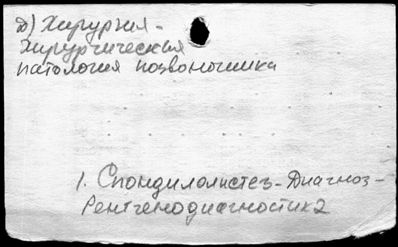 д) Хирургия -
Хирургическая
патология позвоночника
1. Спондилолистез - Диагноз -
Рентгенодиагностика